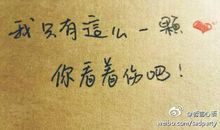 我只有這么一顆
你看着伤吧！
@伤感心语
weibo.com/sadparty